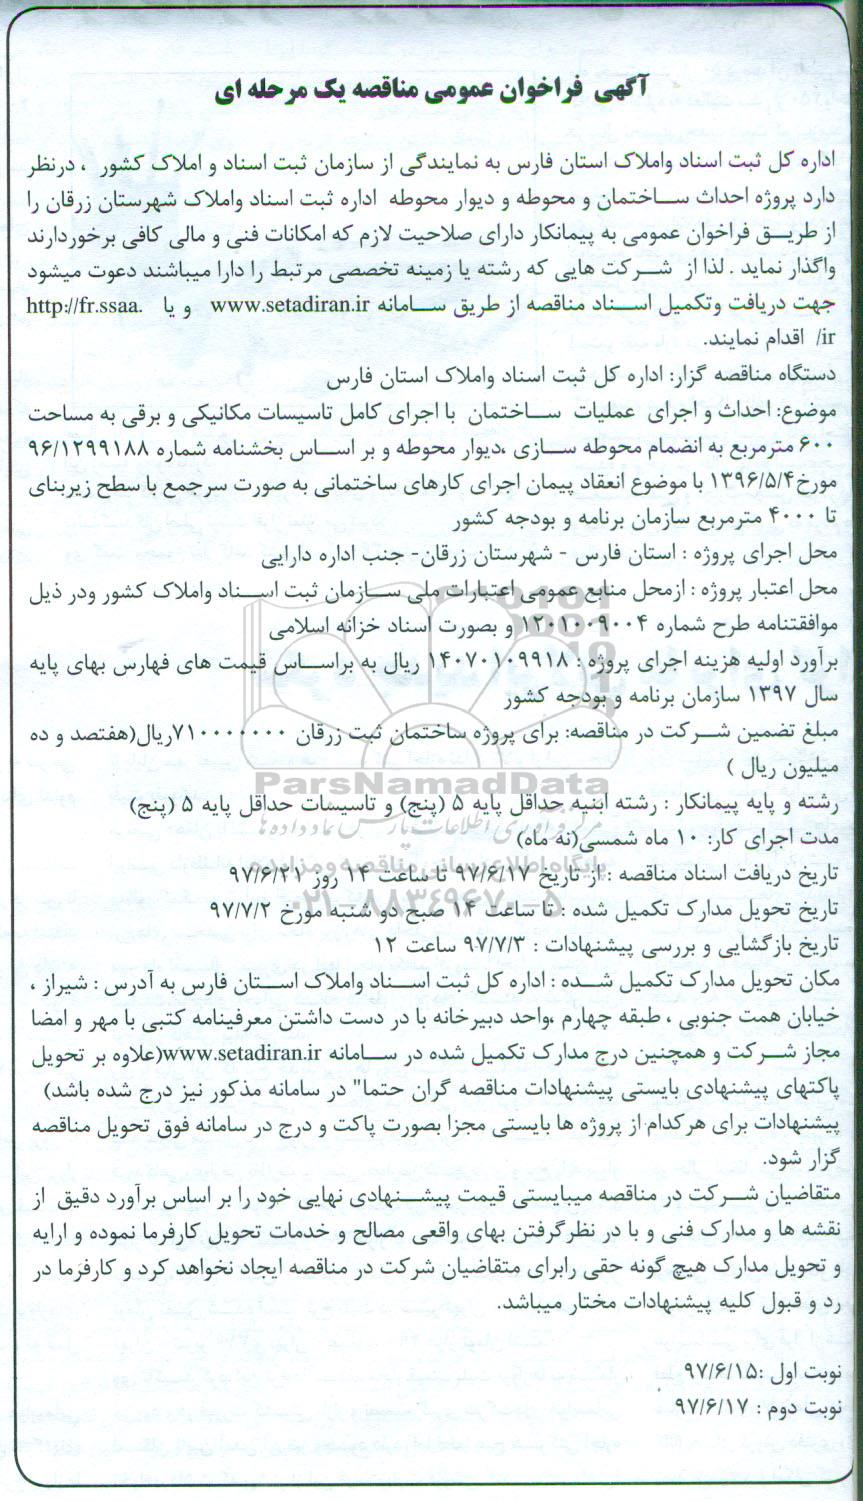 آگهی فراخوان عمومی مناقصه یک مرحله ای
اداره کل ثبت اسناد واملاک استان فارس به نمایندگی از سازمان ثبت اسناد و املاک کشور ، درنظر
دارد پروژه احداث ساختمان و محوطه و دیوار محوطه اداره ثبت اسناد واملاک شهرستان زرقان را
از طریق فراخوان عمومی به پیمانکار دارای صلاحیت لازم که امکانات فنی و مالی کافی برخوردارند
واگذار نماید . لذا از شرکت هایی که رشته یا زمینه تخصصی مرتبط را دارا میباشند دعوت میشود
جهت دریافت وتکمیل اسناد مناقصه از طریق سامانه www.setadiran.ir و یا http://fr.ssaa.
ir/ اقدام نمایند.
دستگاه مناقصه گزار: اداره کل ثبت اسناد واملاک استان فارس
موضوع: احداث و اجرای عملیات ساختمان با اجرای کامل تاسیسات مکانیکی و برقی به مساحت
۶۰۰ مترمربع به انضمام محوطه سازی ،دیوار محوطه و بر اساس بخشنامه شماره ۹۶/۱۲۹۹۱۸۸
مورخ۱۳۹۶/۵/۴ با موضوع انعقاد پیمان اجرای کارهای ساختمانی به صورت سرجمع با سطح زیربنای
تا ۴۰۰۰ مترمربع سازمان برنامه و بودجه کشور
محل اجرای پروژه : استان فارس - شهرستان زرقان- جنب اداره دارایی
محل اعتبار پروژه : ازمحل منابع عمومی اعتبارات ملی سازمان ثبت اسناد واملاک کشور ودر ذیل
موافقتنامه طرح شماره ۱۲۰۱۰۰۹۰۰۴ و بصورت اسناد خزانه اسلامی
برآورد اولیه هزینه اجرای پروژه : ۱۴۰۷۰۱۰۹۹۱۸ ریال به براساس قیمت های فهارس بهای پایه
سال ۱۳۹۷ سازمان برنامه و بودجه کشور
مبلغ تضمین شرکت در مناقصه: برای پروژه ساختمان ثبت زرقان ۷۱۰۰۰۰۰۰۰ریال(هفتصد و ده
میلیون ریال )
ParsNamadData
رشته و پایه پیمانکار : رشته ابنیه حداقل پایه ۵ (پنج) و تاسیسات حداقل پایه ۵ (پنج)
مرکز فرآوری اطلاعات پارس نماد داده ها
مدت اجرای کار: ۱۰ ماه شمسی(نه ماه)
پایگاه اطلاع رسانی مناقصه و مزایده
تاریخ دریافت اسناد مناقصه : از تاریخ ۹۷/۶/۱۷ تا ساعت ۱۴ روز ۹۷/۶/۲۱
۰۲۱-۸۸۳۴۹۶۷۰-۵
تاریخ تحویل مدارک تکمیل شده : تا ساعت ۱۴ صبح دو شتبه مورخ ۹۷/۷/۲
تاریخ بازگشایی و بررسی پیشنهادات : ۹۷/۷/۳ ساعت ۱۲
مکان تحویل مدارک تکمیل شده : اداره کل ثبت اسناد واملاک استان فارس به آدرس : شیراز ،
خیابان همت جنوبی ، طبقه چهارم ،واحد دبیرخانه با در دست داشتن معرفینامه کتبی با مهر و امضا
مجاز شرکت و همچنین درج مدارک تکمیل شده در سامانه www.setadiran.ir(علاوه بر تحویل
پاکتهای پیشنهادی بایستی پیشنهادات مناقصه گران حتما" در سامانه مذکور نیز درج شده باشد)
پیشنهادات برای هرکدام از پروژه ها بایستی مجزا بصورت پاکت و درج در سامانه فوق تحویل مناقصه
گزار شود.
متقاضیان شرکت در مناقصه میبایستی قیمت پیشنهادی نهایی خود را بر اساس برآورد دقیق از
نقشه ها و مدارک فنی و با در نظرگرفتن بهای واقعی مصالح و خدمات تحویل کارفرما نموده و ارایه
و تحویل مدارک هیچ گونه حقی رابرای متقاضیان شرکت در مناقصه ایجاد نخواهد کرد و کارفرما در
رد و قبول کلیه پیشنهادات مختار میباشد.
نوبت اول :۹۷/۶/۱۵
نوبت دوم : ۹۷/۶/۱۷